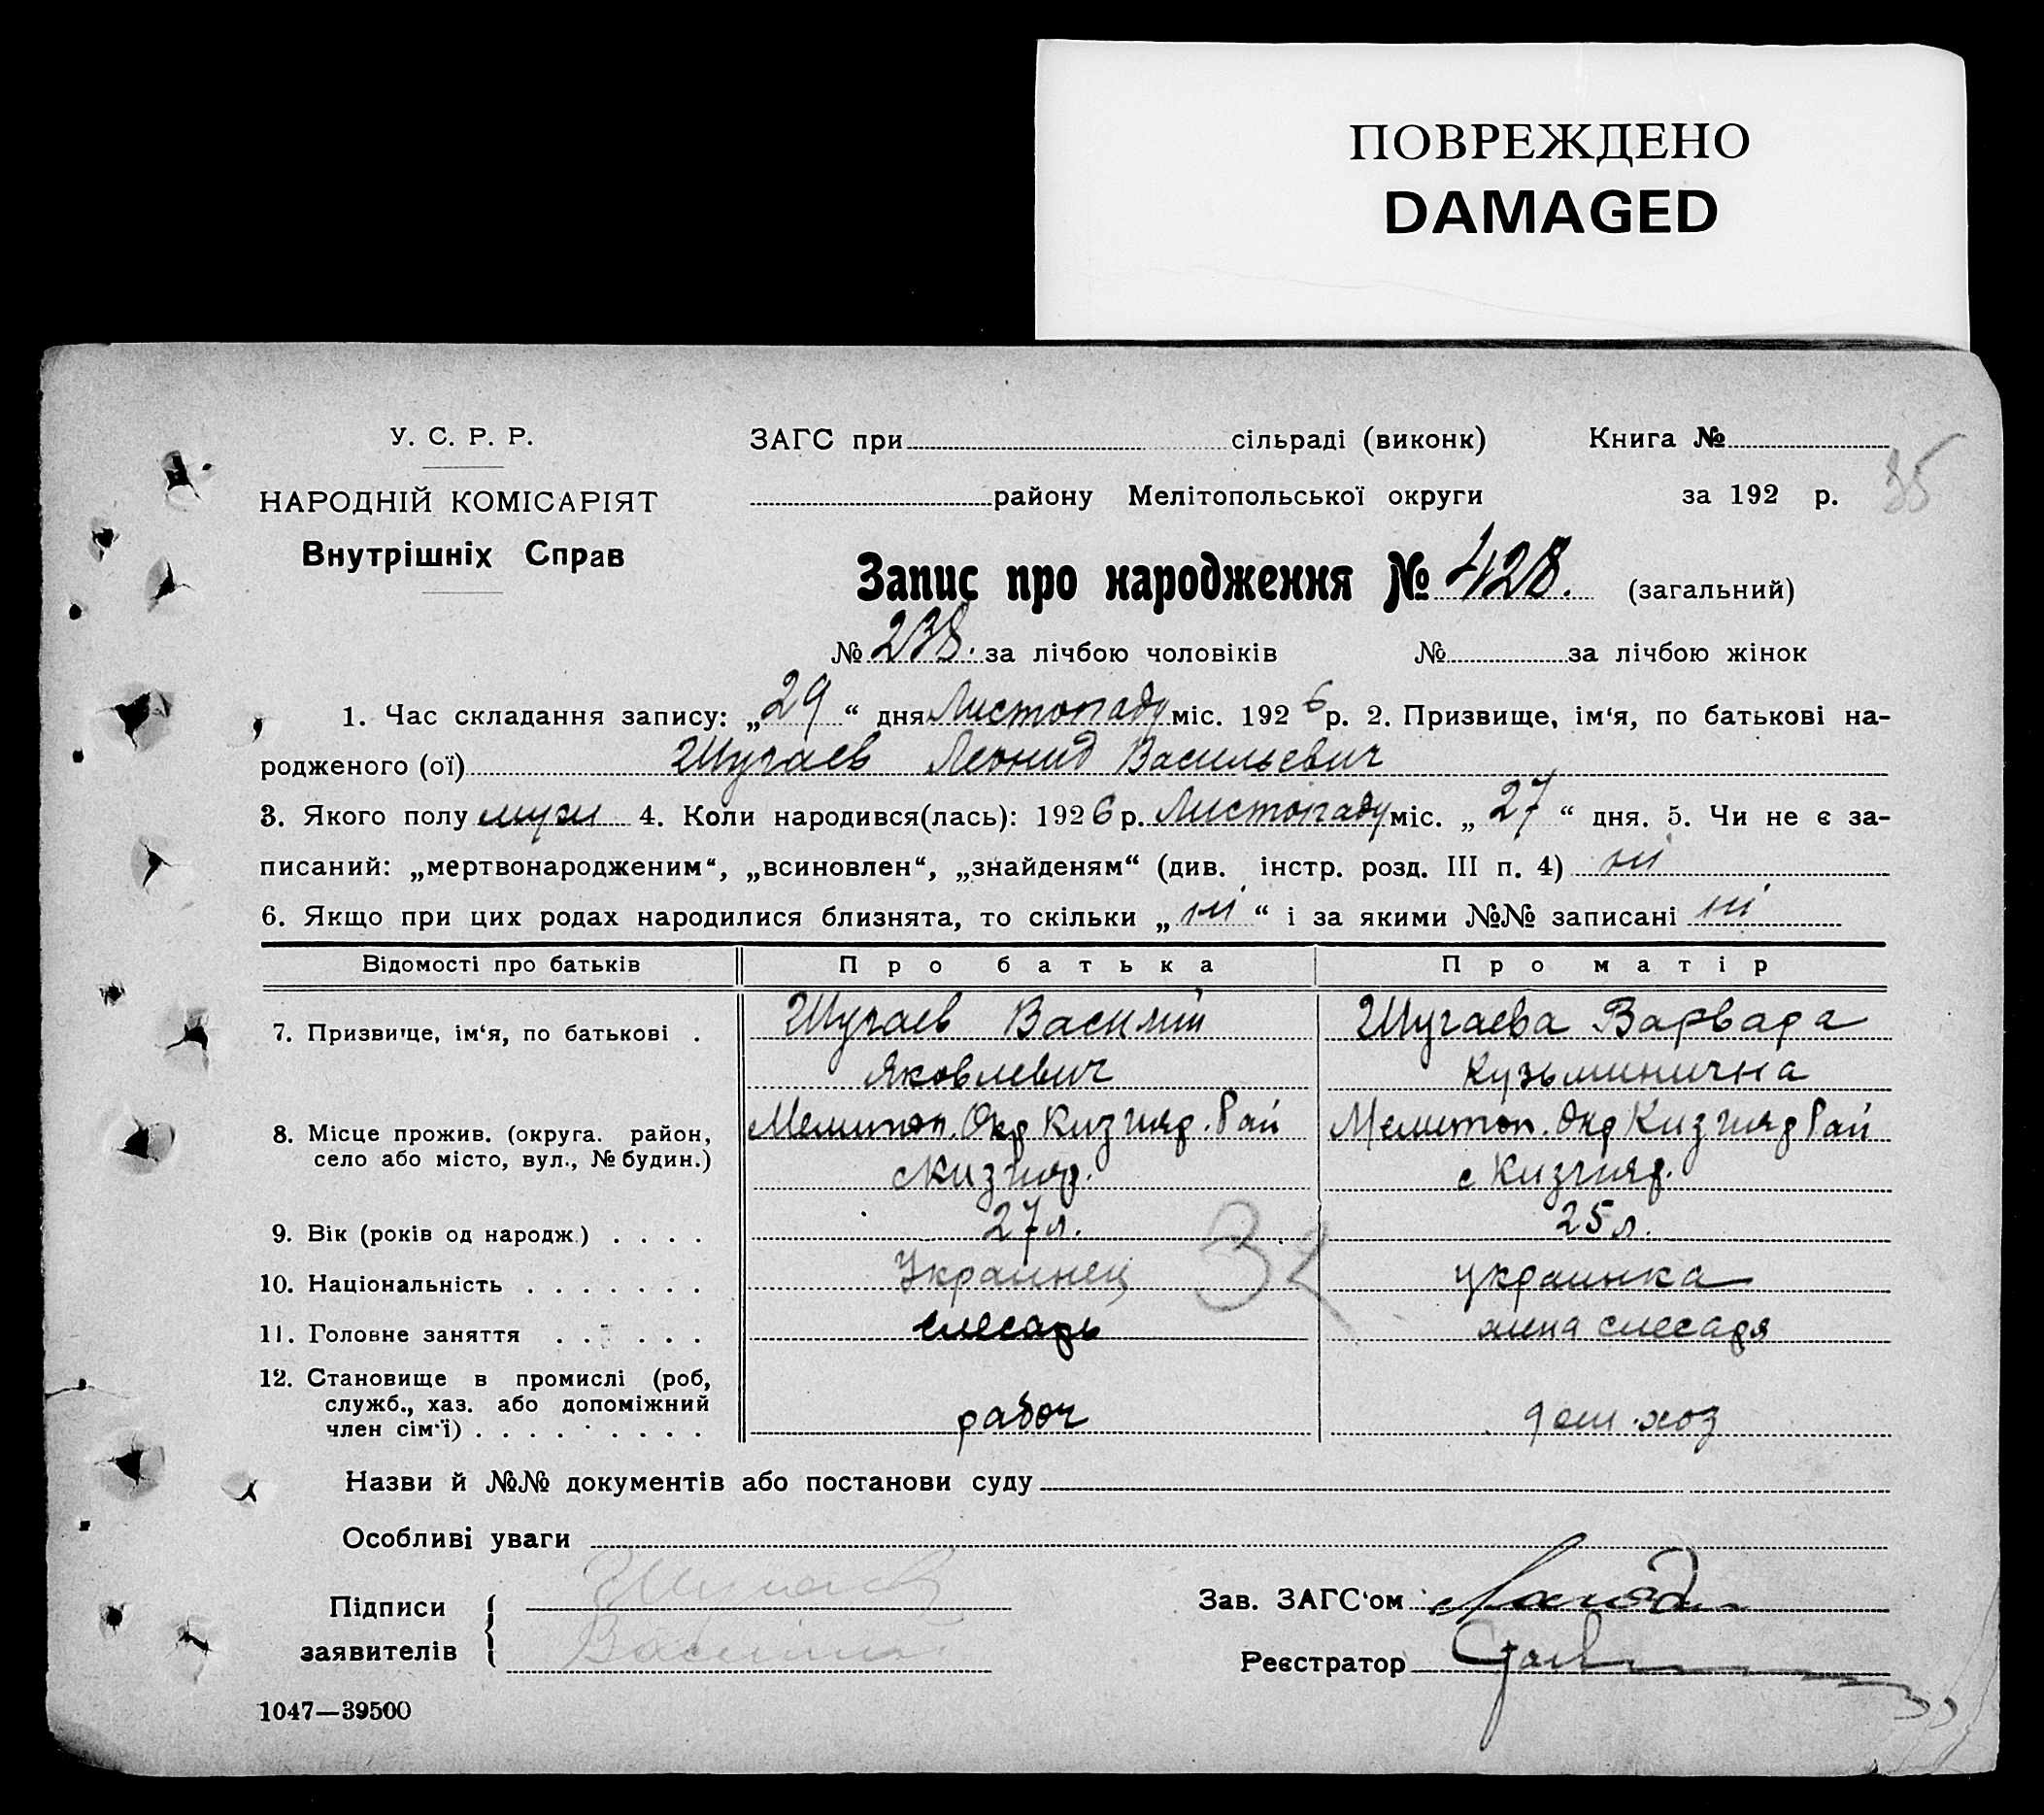 ПОВРЕЖДЕНО
DAMAGED
У. С. Р. Р.
НАРОДНІЙ КОМІСАРІЯТ
Внутрішніх Справ
ЗАГС при сільраді (виконк) Книга №
району Мелітопольської округи за 192 р.
35
Запис про народження № 428. (загальний)
№ 238. за лічбою чоловіків № за лічбою жінок
1. Час складання запису: „29“ дня Листопаду міс. 1926 р. 2. Призвище, ім‘я, по батькові на-
родженого (ої) Шугаев Леонид Васильевич
3. Якого полу муж 4. Коли народився(лась): 1926 р. Листопаду міс. „27“ дня. 5. Чи не є за-
писаний: „мертвонародженим“, „всиновлен“, „знайденям“ (див. інстр. розд. III п. 4) ні
6. Якщо при цих родах народилися близнята, то скільки „ні“ і за якими №№ записані ні
Відомості про батьків Про батька Про матір
7. Призвище, ім‘я, по батькові . Шугаев Василий Шугаева Варвара
Яковлевич Кузьминична
8. Місце прожив. (округа. район, Мелитоп. Окр Кизгияр. Рай Мелитоп. Окр Кизгияр Рай
село або місто, вул., № будин.) с Кизгияр. с Кизгияр.
9. Вік (років од народж.) . . . . 27 л. 25 л.
32
10. Національність . . . . . . . Украинец украинка
11. Головне заняття . . . . . . слесарь жена слесаря
12. Становище в промислі (роб,
служб., хаз. або допоміжний
член сім‘ї) . . . . . . . . . рабоч дом. хоз
Назви й №№ документів або постанови суду
Особливі уваги
Підписи Шугаев
заявителів Василий
Зав. ЗАГС‘ом
Реєстратор
1047—39500